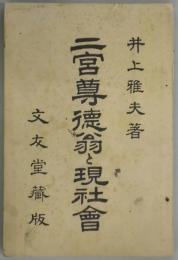 井上雅夫著
二宮尊徳翁と現社會
文友堂藏版